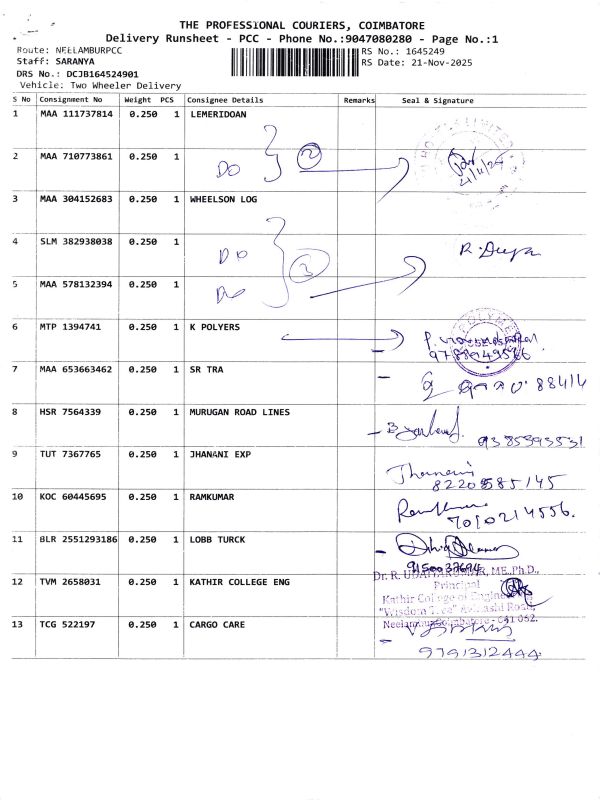 THE PROFESSIONAL COURIERS, COIMBATORE
Delivery Runsheet - PCC - Phone No.:9047080280 - Page No.:1
Route: NEELAMBURPCC
RS No.: 1645249
Staff: SARANYA
RS Date: 21-Nov-2025
DRS No.: DCJB164524901
Vehicle: Two Wheeler Delivery
S No Consignment No Weight PCS Consignee Details Remarks Seal & Signature
1 MAA 111737814 0.250 1 LEMERIDOAN
2 MAA 710773861 0.250 1
DO 2
3 MAA 304152683 0.250 1 WHEELSON LOG
4 SLM 382938038 0.250 1
DO 3 R. Deepa
5 MAA 578132394 0.250 1
DO
6 MTP 1394741 0.250 1 K POLYERS
7 MAA 653663462 0.250 1 SR TRA
88414
8 HSR 7564339 0.250 1 MURUGAN ROAD LINES
9385393531
9 TUT 7367765 0.250 1 JHANANI EXP
8220585145
10 KOC 60445695 0.250 1 RAMKUMAR
Ramkumar
7010214556.
11 BLR 2551293186 0.250 1 LOBB TURCK
9150037694
12 TVM 2658031 0.250 1 KATHIR COLLEGE ENG
Dr. R. UDAIYAKUMAR, ME,Ph.D.,
Principal
Kathir College of Engineering
"Wisdom Tree" Avinashi Road,
Neelambur, Coimbatore - 641 062.
13 TCG 522197 0.250 1 CARGO CARE
9791312444